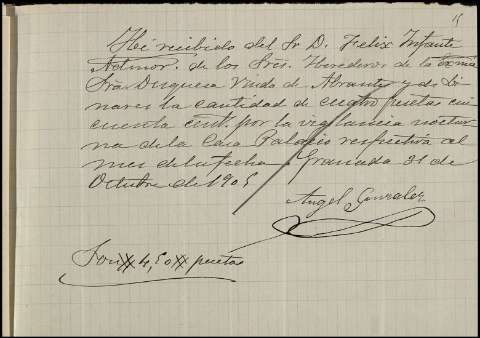 15
He recibido del Sr D. Felix Infante
Admor. de los Sres. Herederos de la Excma
Sra. Duquesa Viuda de Abrantes y de Li
nares la cantidad de cuatro pesetas cin
cuenta cents. por la vigilancia noctur
na de la Casa Palacio respectiva al
mes de la fecha Granada 31 de
Octubre de 1905
Angel Gonzalez
Son 4,50 pesetas